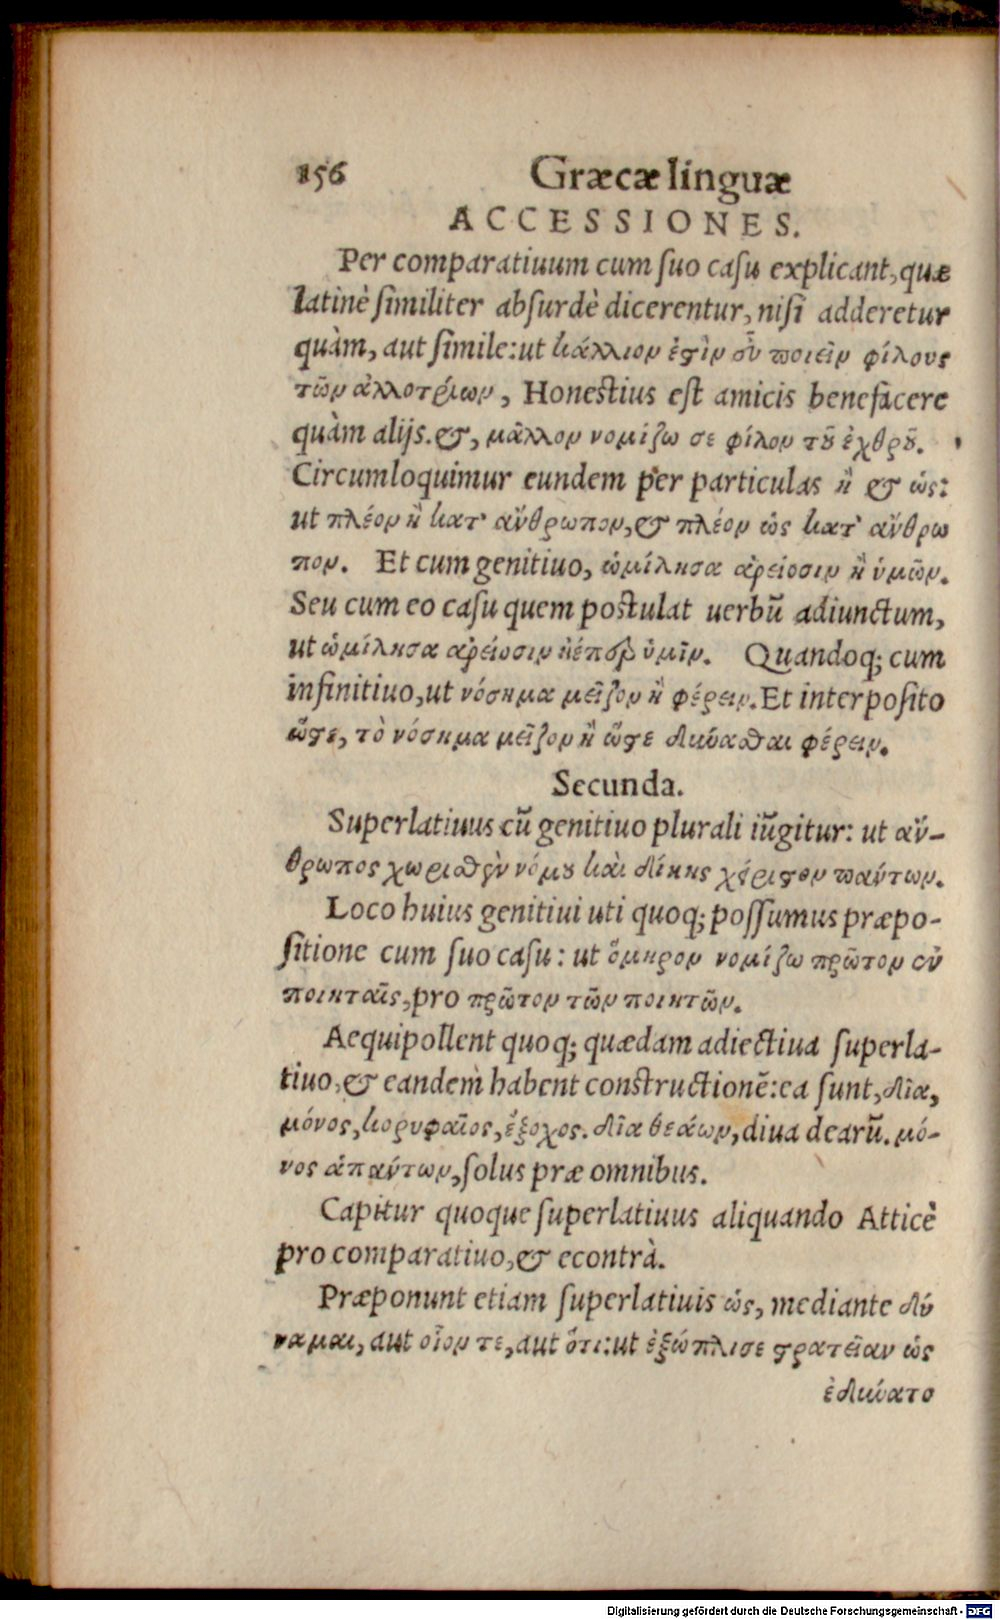 156 Græcæ linguæ
ACCESSIONES.
Per comparatiuum cum ſuo caſu explicant, quæ
latinè ſimiliter abſurdè dicerentur, niſi adderetur
quàm, aut ſimile: ut κάλλιον ἐστὶν εὖ ποιεῖν φίλους
τῶν ἀλλοτρίων, Honeſtius eſt amicis benefacere
quàm alijs. &, μᾶλλον νομίζω σε φίλον τοῦ ἐχθροῦ.
Circumloquimur eundem per particulas ἢ & ὡς:
ut πλέον ἢ κατ' ἄνθρωπον, & πλέον ὡς κατ' ἄνθρω
πον. Et cum genitiuo, ὡμίλησα ἀρείοσιν ἢ ὑμῶν.
Seu cum eo caſu quem poſtulat uerbũ adiunctum,
ut ὡμίλησα ἀρείωσιν ἠέπερ ὑμῖν. Quandoq; cum
infinitiuo, ut νόσημα μεῖζον ἢ φέρειν. Et interpoſito
ὥστε, τὸ νόσημα μεῖζον ἢ ὥστε δύνασθαι φέρειν.
Secunda.
Superlatiuus cũ genitiuo plurali iũgitur: ut ἄν-
θρωπος χωρισθὲν νόμου καὶ δίκης χείριστον πάντων.
Loco huius genitiui uti quoq; poſſumus præpo-
ſitione cum ſuo caſu: ut ὅμηρον νομίζω πρῶτον ἐν
ποιηταῖς, pro πρῶτον τῶν ποιητῶν.
Aequipollent quoq; quædam adiectiua ſuperla-
tiuo, & eandem habent constructionẽ: ea ſunt, δῖα,
μόνος, κορυφαῖος, ἔξοχος. δῖα θεάων, diua dearũ. μό-
νος ἁπάντων, ſolus præ omnibus.
Capitur quoque ſuperlatiuus aliquando Atticè
pro comparatiuo, & econtrà.
Præponunt etiam ſuperlatiuis ὡς, mediante δύ
ναμαι, aut οἷον τε, aut ὅτι: ut ἐξώπλισε στρατείαν ὡς
ἐδύνατο
Digitalisierung gefördert durch die Deutsche Forschungsgemeinschaft - DFG